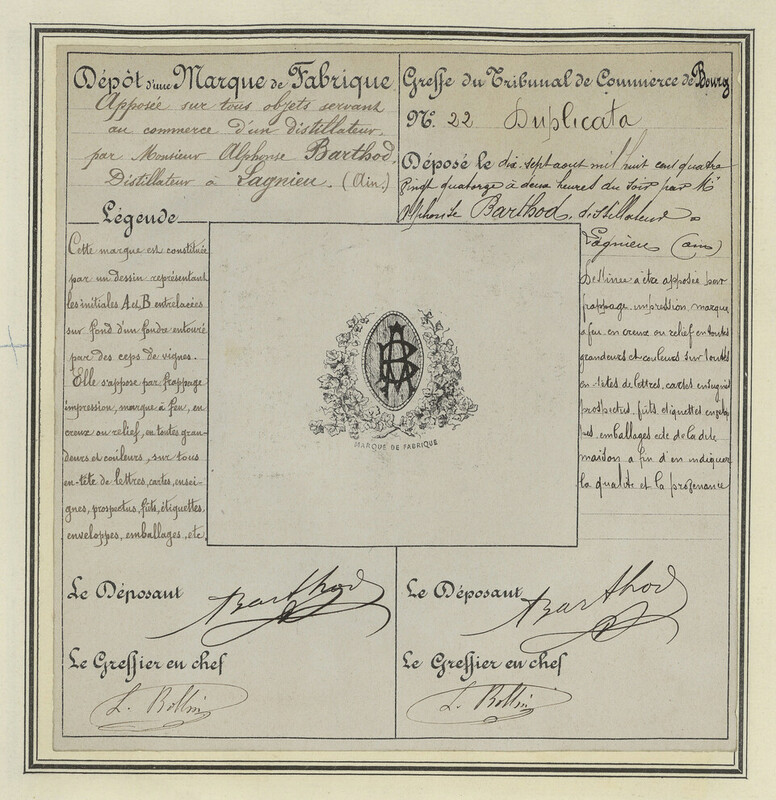 Dépôt d'une Marque de Fabrique
Apposée sur tous objets servant
au commerce d'un distillateur,
par Monsieur Alphonse Barthod,
Distillateur à Lagnieu. (Ain.)
Légende
Cette marque est constituée
par un dessin représentant
les initiales A et B entrelacées
sur fond d'un foudre entouré
par des ceps de vignes.
Elle s'appose par frappage
impression, marque à feu, en
creux ou relief, en toutes gran-
deurs et couleurs, sur tous
en-tête de lettres, cartes, ensei-
gnes, prospectus, fûts, étiquettes,
enveloppes, emballages, etc
AB
MARQUE DE FABRIQUE
Le Déposant
Barthod
Le Greffier en chef
L. Rollin
Greffe du Tribunal de Commerce de Bourg
N°. 22 Duplicata
Déposé le dix-sept aout mil huit cent quatre
vingt quatorze à deux heures du soir par Mr
Alphonse Barthod, distillateur à
Lagnieu (ain)
Destinée a être apposée par
frappage, impression, marque
a feu, en creux ou relief en toutes
grandeurs et couleurs sur toutes
en-têtes de lettres, cartes enseignes
prospectus, fûts, etiquettes envelop
pes, emballages etc de la dite
maison a fin d'en indiquer
la qualité et la provenance
Le Déposant
Barthod
Le Greffier en chef
L. Rollin